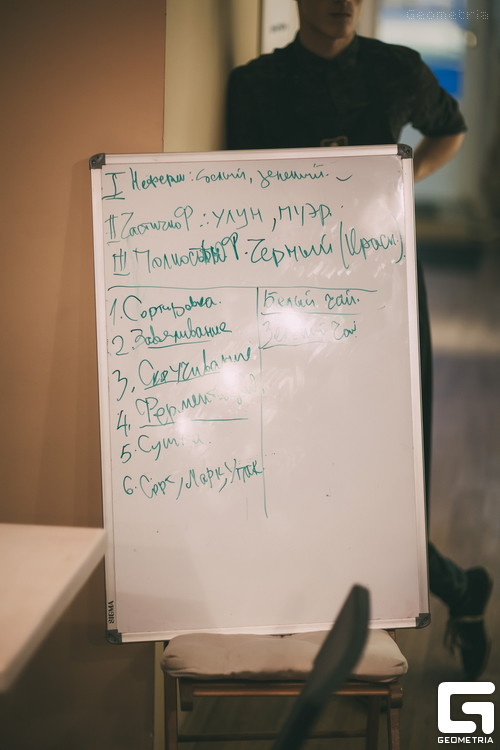 Geometria
I Неферм: белый, зеленый.
II Частично Ф.: улун, пуэр.
III Полностью Ф. Черный (Красн.)
1. Сортировка.
2. Завяливание
3. Скручивание
4. Фермент
5. Сушка.
6. Сорт, Марк, Упак
Белый чай.
Чай
SIGMA
GEOMETRIA